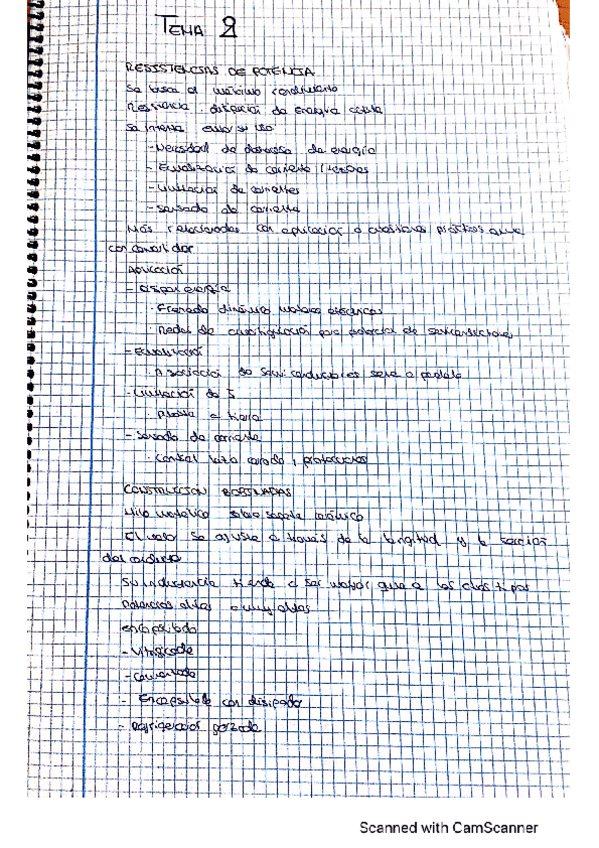 TEMA 2
RESISTENCIAS DE POTENCIA
Se busca el máximo rendimiento
Resistencia: disipación de energía
Se intenta evitar su uso
- Necesidad de de energía
- Ecualización de corriente / tensiones
- Limitación de corrientes
- Sensado de corriente
Más relacionadas con aplicación a prácticos que
con convertidor
Aplicación
- Disipar energía
· Frenado dinámico motores eléctricos
· Redes de para potencia de semiconductores
- Ecualización
· Asociación de semiconductores serie o paralelo
- Limitación de I
· Puesta a tierra
- Sensado de corriente
· Control lazo cerrado, protecciones
CONSTRUCCIÓN BOBINADAS
Hilo metálico sobre soporte cerámico
El valor se ajusta a través de la longitud y la sección
del
Su inductancia tiende a ser mayor que a los otros tipos
Potencias altas o muy altas
encapsulado
- Vitrificada
- Cementada
- Encapsulado con disipador
- Refrigeración forzada
Scanned with CamScanner